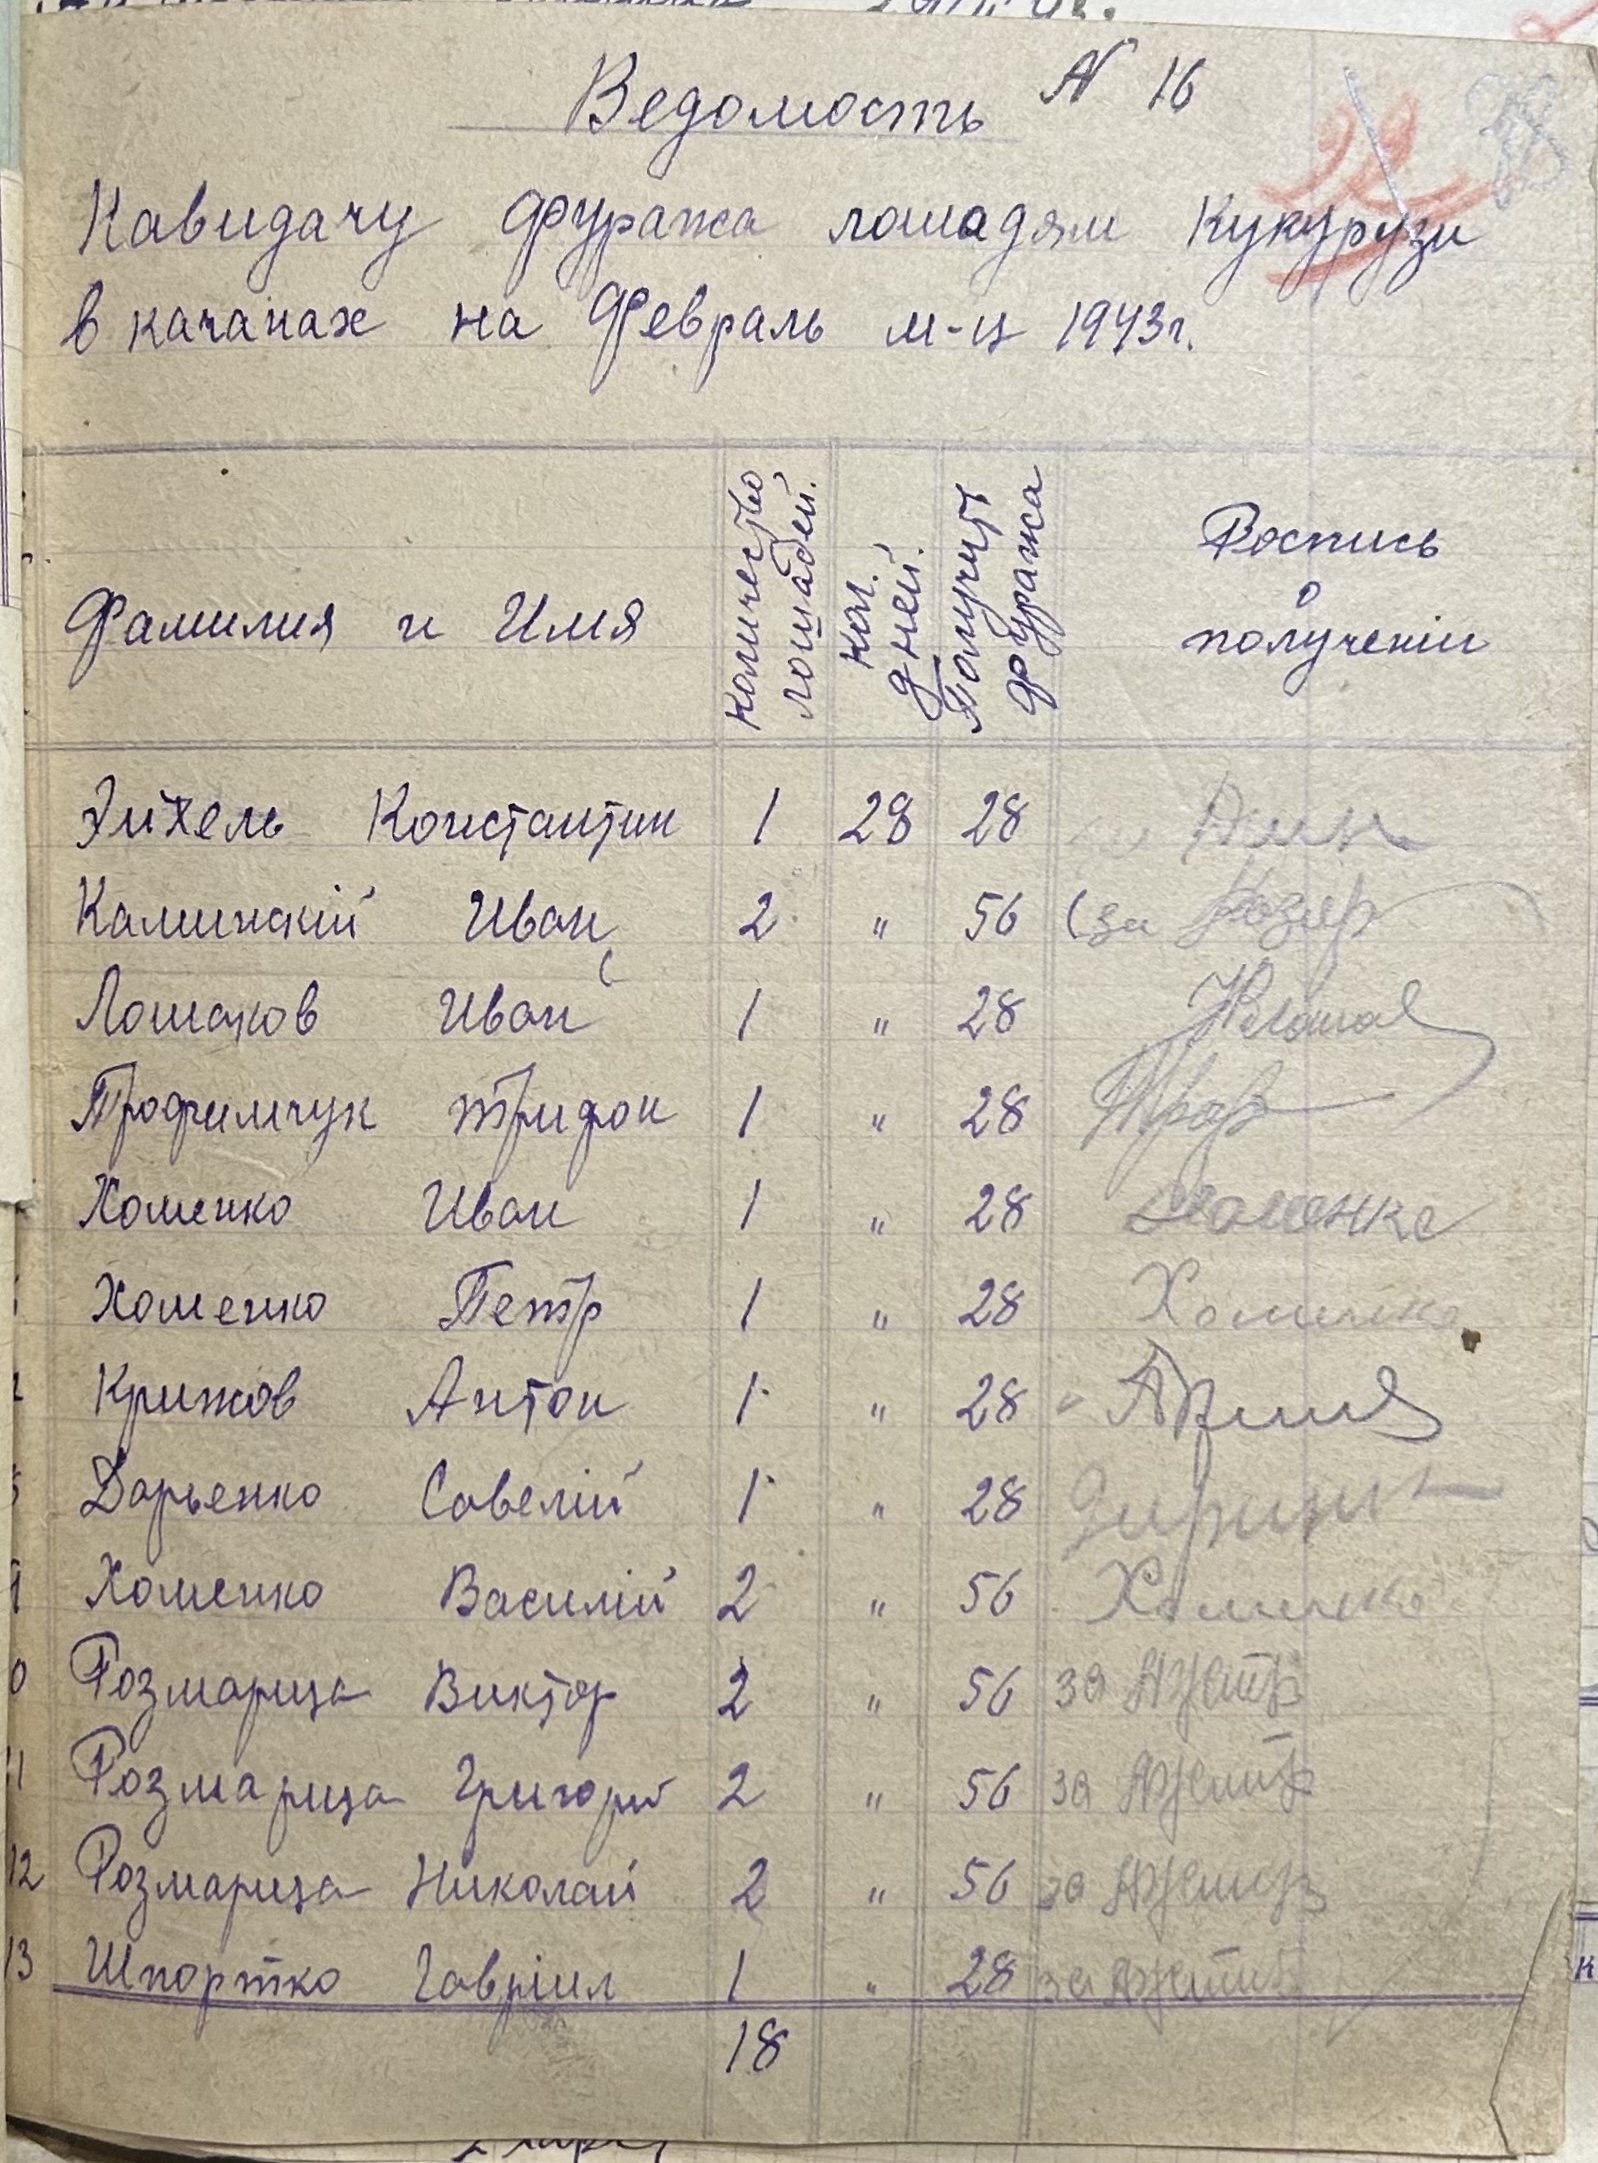 Ведомость N 16
Навидачу фуража лошадям Кукурузи
в качанах на Февраль м-ц 1943г.
Фамилия и Имя
количество лошадей.
кол. дней.
Получить фуража
Роспись
о
получении
Эйхель Константин 1 28 28
Каминскій Иван 2 " 56 (за
Лошаков Иван 1 " 28
Трофимчук Трифон 1 " 28 Троф
Хоменко Иван 1 " 28 Хоменко
Хоменко Петр 1 " 28 Хоменко
Крижов Антон 1 " 28
Дарьенко Савелій 1 " 28
9 Хоменко Василій 2 " 56 Хоменко
0 Розмарица Виктор 2 " 56 за
11 Розмарица Григорій 2 " 56 за
12 Розмарица Николай 2 " 56 за
13 Шпортко Гавріил 1 " 28 за
18